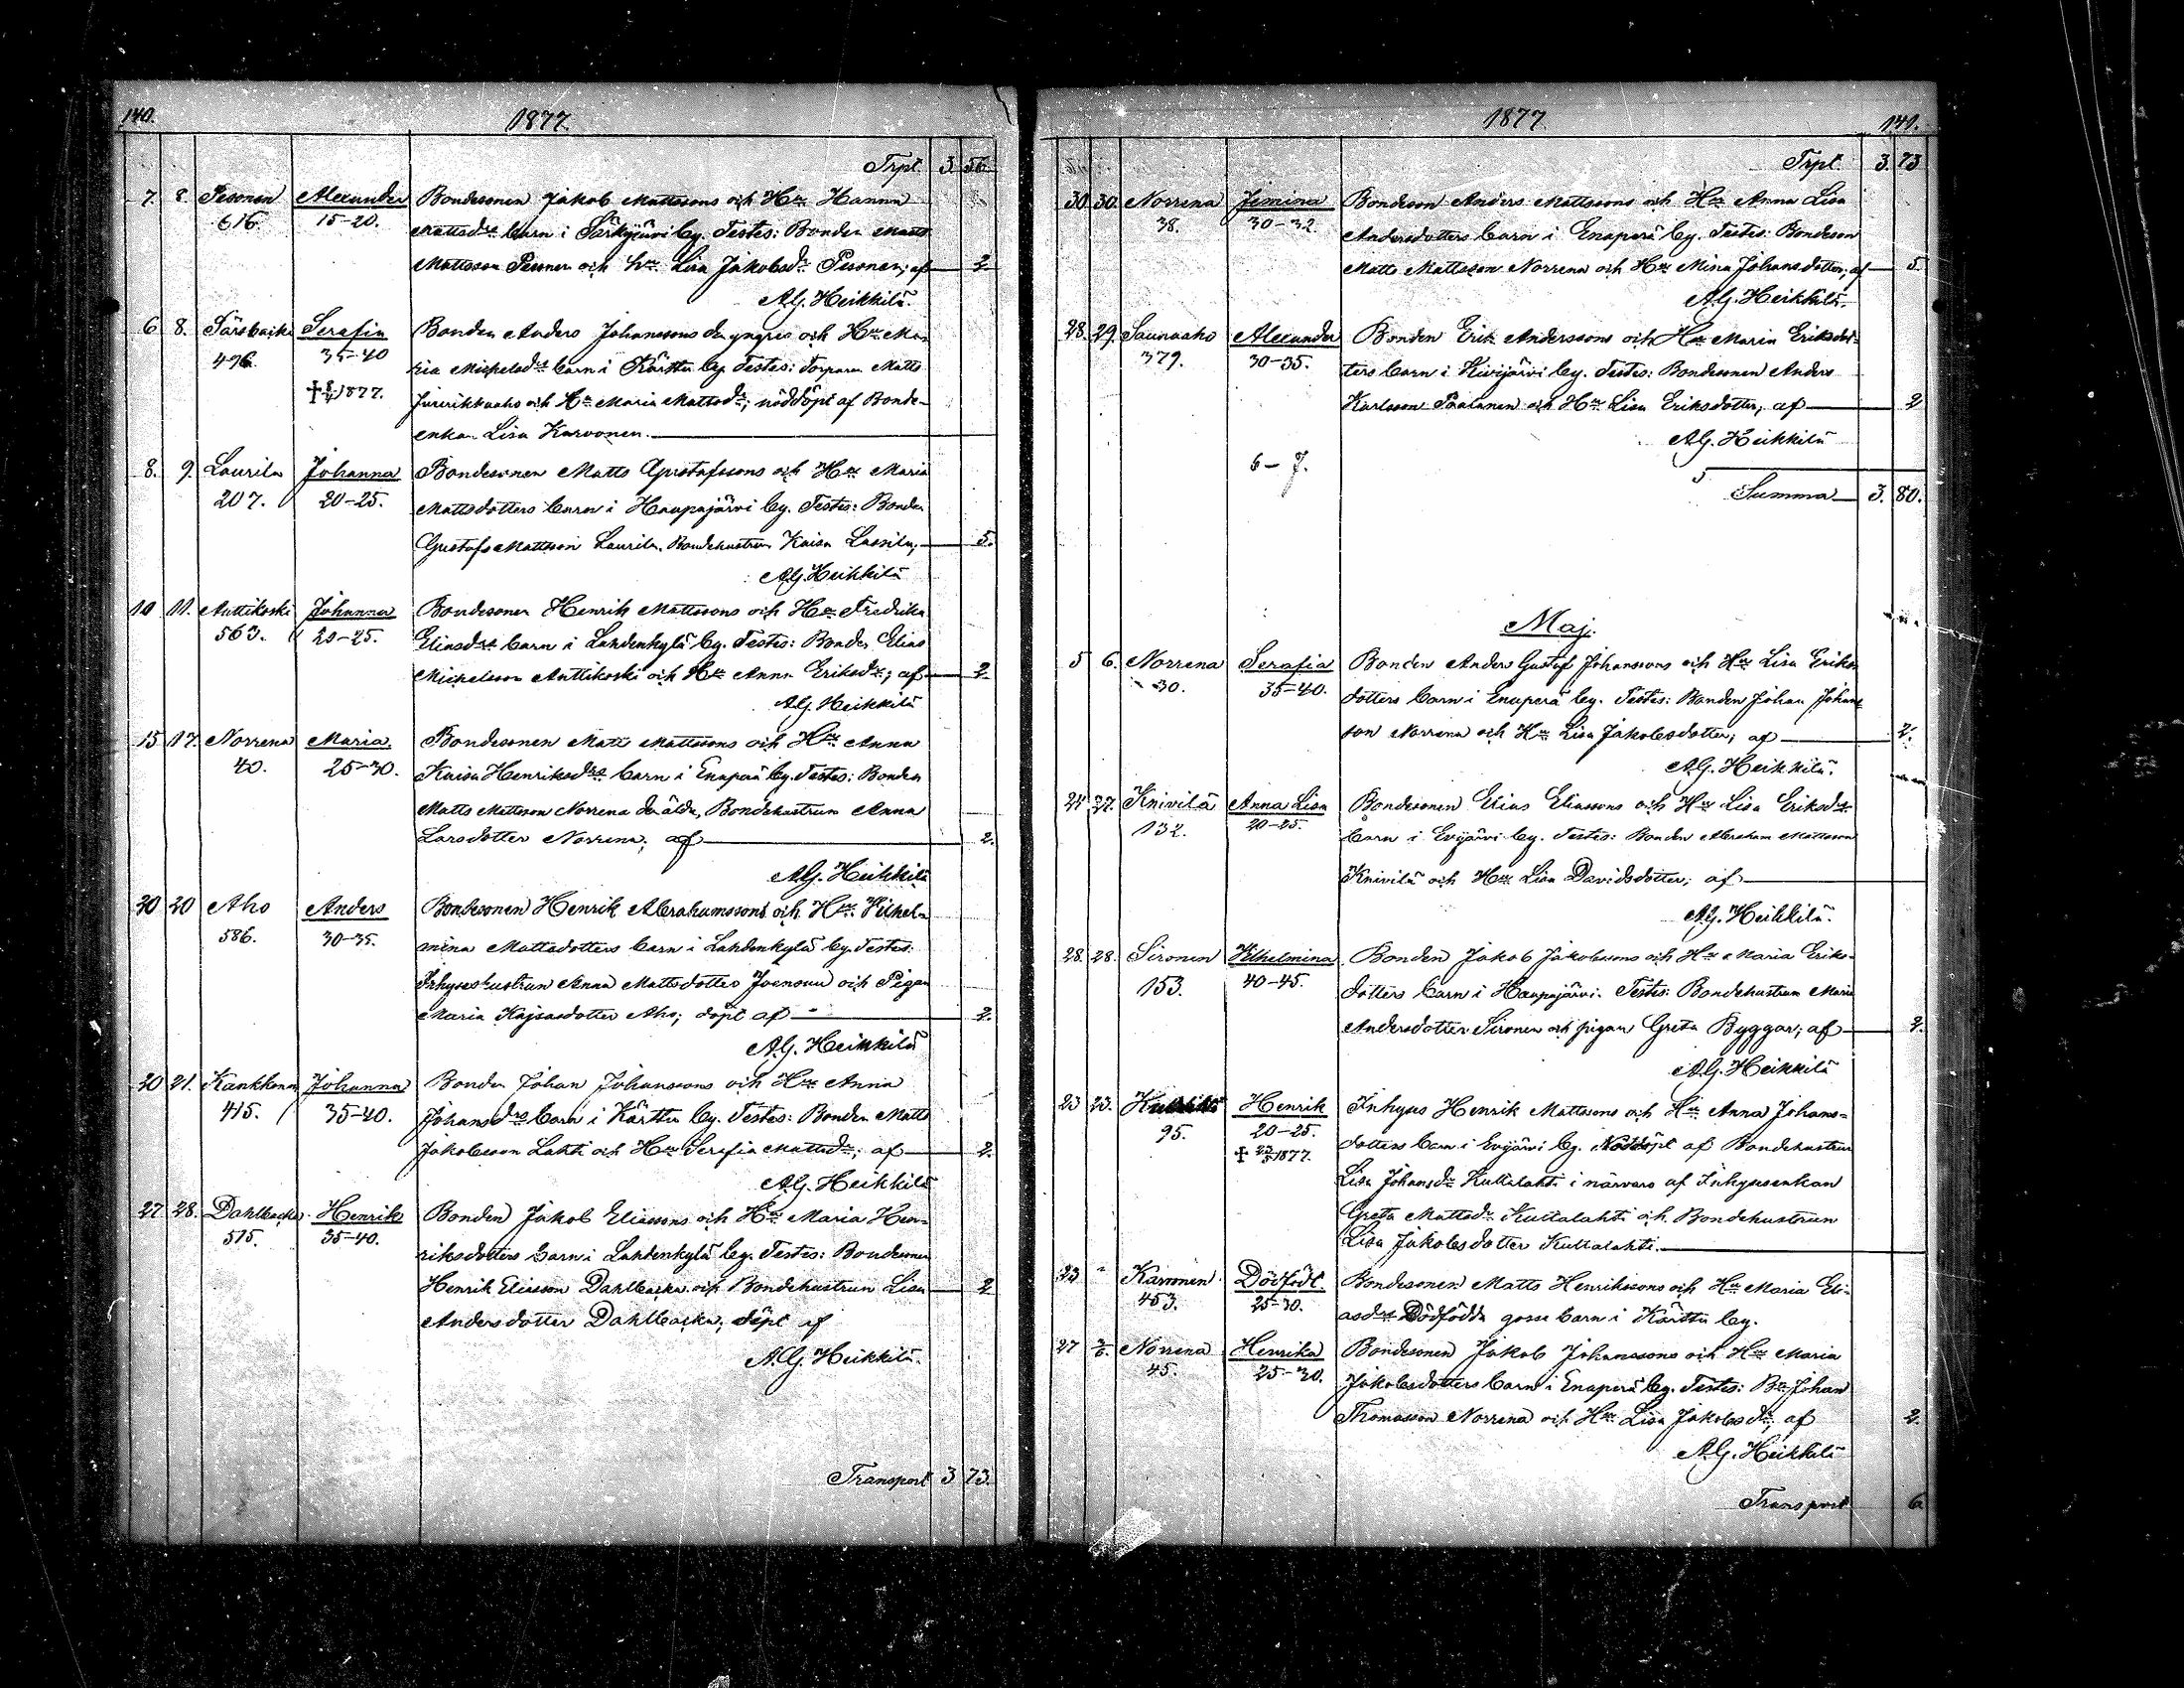 140.
1877.
Trpt. 3 56
7. 8. Pesonen Alexander Bondesonen Jakob Mattssons och Hu Hanna
616. 15-20. Mattsdrs barn i Särkijärvi by. Testes: Bonden Matts
Mattsson Pesonen och hu Lisa Jakobsdr Pesonen; af 2.
A.G. Heikkilä.
6 8. Serafia Bonden Anders Johanssons den yngres och Hu Ma-
496. 35-40 ria Michelsdrs barn i Kärttu by. Testes: Torparen Matts
1877. och Hu Maria Mattsdr; nöddöpt af Bonde-
enkan Lisa Karvonen.
8. 9. Laurila Johanna Bondesonen Matts Gustafssons och Hu Maria
207. 20-25. Mattsdotters barn i Haapajärvi by. Testes: Bonden
Gustaf Mattsson Laurila, Bondehustrun Kaisa Lassila; 5.
A.G. Heikkilä
10 11. Anttikoski Johanna Bondesonen Henrik Mattssons och Hu Fredrika
563. 20-25. Eliasdrs barn i Lahdenkylä by. Testes: Bonden Elias
Michelsson Anttikoski och Hu Anna Eriksdr; af 2.
A.G. Heikkilä
15 17. Norrena Maria. Bondesonen Matts Mattssons och Hu Anna
40. 25-30. Kaisa Henriksdrs barn i Enaperä by. Testes: Bonden
Matts Mattsson Norrena den äldre, Bondehustrun Anna
Larsdotter Norrena; af 2.
A.G. Heikkilä
20 20 Aho Anders Bondesonen Henrik Abrahamssons och Hu Vilhel-
586. 30-35. mina Mattsdotters barn i Lahdenkylä by. Testes:
Inhyseshustrun Anna Mattsdotter Joensuu och Pigan
Maria Kajsasdotter Aho; döpt af 2.
A.G. Heikkilä
20 21. Kankkonen Johanna Bonden Johan Johanssons och Hu Anna
415. 35-40. Johansdrs barn i Kärttu by. Testes: Bonden Matts
Jakobsson Lahti och Hu Serafia Mattsdr; af 2.
A.G. Heikkilä
27 28. Dahlbacka Henrik Bonden Jakob Eliassons och Hu Maria Hen-
515. 35-40. riksdotters barn i Lahdenkylä by. Testes: Bondesonen
Henrik Eliasson Dahlbacka och Bondehustrun Lisa 2
Andersdotter Dahlbacka; döpt af
A.G. Heikkilä.
Transport 3 73.
1877
141.
Trpt. 3. 73
30. 30. Norrena Jemina Bondeson Anders Mattssons och Hu Anna Lisa
38. 30-32. Andersdotters barn i Enaperä by. Testes: Bondeson
Matts Mattsson Norrena och Hu Mina Johansdotter; af 5.
A.G. Heikkilä.
28. 29. Saunaaho Alexander Bonden Erik Anderssons och Hu Maria Eriksdot-
379. 30-35. ters barn i Kivijärvi by. Testes: Bondesonen Anders
Karlsson Paalanen och Hu Lisa Eriksdotter; af 2
A.G. Heikkilä
6-7.
Summa 3. 80.
Maj.
5 6. Norrena Serafia Bonden Anders Gustaf Johanssons och Hu Lisa Eriks-
30. 35-40. dotters barn i Enaperä by. Testes: Bonden Johan Johans-
son Norrena och Hu Lisa Jakobsdotter; af 2.
A.G. Heikkilä.
24 27. Knivilä Anna Lisa Bondesonen Elias Eliassons och Hu Lisa Eriksdr
132. 20-25. barn i Evijärvi by. Testes: Bonden Abraham Mattsson
Knivilä och Hu Lisa Davidsdotter; af
A.G. Heikkilä.
28. 28. Sironen Vilhelmina Bonden Jakob Jakobssons och Hu Maria Eriks-
153. 40-45. dotters barn i Haapajärvi. Testes: Bondehustrun Maria
Andersdotter Sironen och pigan Greta Byggar; af 2.
A.G. Heikkilä
23 23. Henrik Inhyses Henrik Mattssons och Hu Anna Johans-
95. 20-25. dotters barn i Evijärvi by. Nöddöpt af Bondehustrun
1877. Lisa Johansdr Kultalahti i närvaro af Inhysesenkan
Greta Mattsdr Kultalahti och Bondehustrun
Lisa Jakobsdotter Kultalahti.
23 " Karvonen Dödfödt. Bondesonen Matts Henrikssons och Hu Maria Eli-
453. 25-30. asdrs Dödfödda gosse barn i Kärttu by.
27 Norrena Henrika Bondesonen Jakob Johanssons och Hu Maria
45. 25-30. Jakobsdotters barn i Enaperä by. Testes: Bn Johan
Thomasson Norrena och Hu Lisa Jakobsdr; af 2.
A.G. Heikkilä
Transport 6